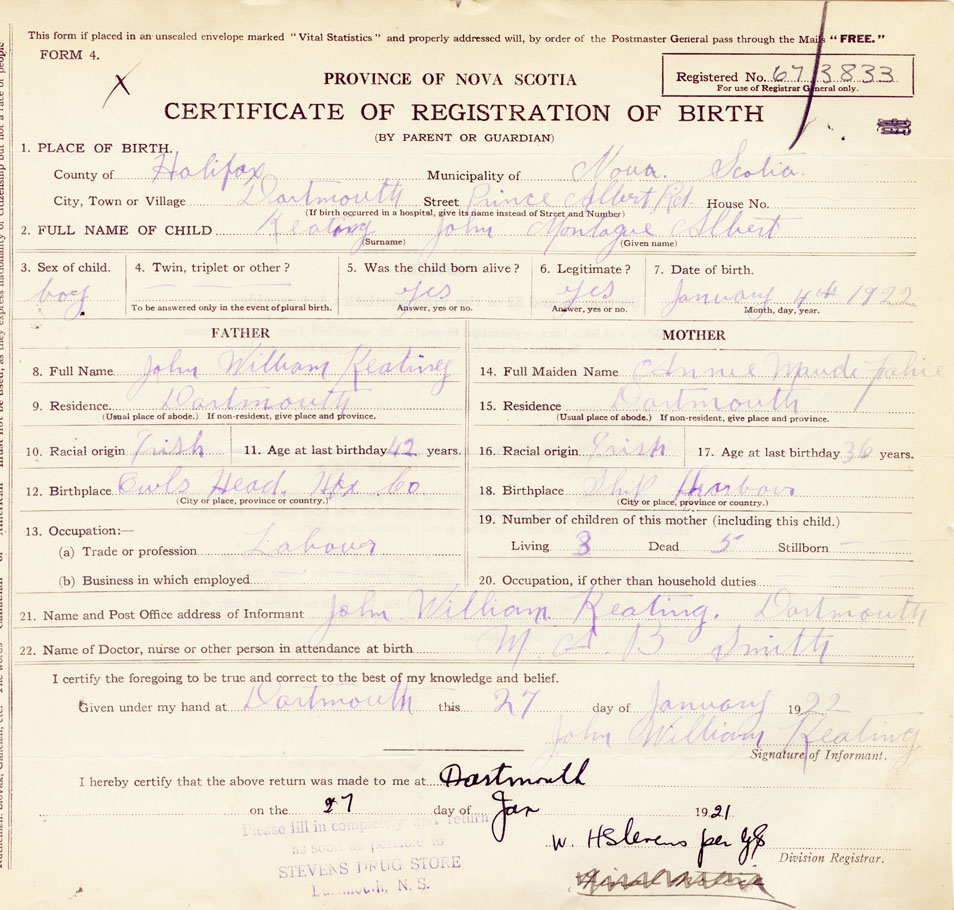 This form if placed in an unsealed envelope marked "Vital Statistics" and properly addressed will, by order of the Postmaster General pass through the Mails "FREE."
FORM 4.
X
PROVINCE OF NOVA SCOTIA
Registered No. 67/3833
For use of Registrar General only.
CERTIFICATE OF REGISTRATION OF BIRTH
(BY PARENT OR GUARDIAN)
1. PLACE OF BIRTH.
County of Halifax Municipality of Nova Scotia.
City, Town or Village Dartmouth Street Prince Albert Rd. House No.
(If birth occurred in a hospital, give its name instead of Street and Number)
2. FULL NAME OF CHILD Keating John Montague Albert
(Surname) (Given name)
3. Sex of child. 4. Twin, triplet or other? 5. Was the child born alive? 6. Legitimate? 7. Date of birth.
boy yes yes January 4th 1922
To be answered only in the event of plural birth. Answer, yes or no. Answer, yes or no. Month, day, year.
FATHER MOTHER
8. Full Name John William Keating 14. Full Maiden Name Annie Maude
9. Residence Dartmouth 15. Residence Dartmouth
(Usual place of abode.) If non-resident, give place and province. (Usual place of abode.) If non-resident, give place and province.
10. Racial origin Irish 11. Age at last birthday 42 years. 16. Racial origin Irish 17. Age at last birthday 36 years.
12. Birthplace Owls Head. Hfx Co 18. Birthplace Ship Harbour
(City or place, province or country.) (City or place, province or country.)
13. Occupation:— 19. Number of children of this mother (including this child.)
(a) Trade or profession Labour Living 3 Dead 5 Stillborn
(b) Business in which employed 20. Occupation, if other than household duties
21. Name and Post Office address of Informant John William Keating. Dartmouth
22. Name of Doctor, nurse or other person in attendance at birth M. A. B Smith
I certify the foregoing to be true and correct to the best of my knowledge and belief.
Given under my hand at Dartmouth this 27 day of January 1922
John William Keating
Signature of Informant.
I hereby certify that the above return was made to me at Dartmouth
on the 27 day of Jan 1921
Please fill in completely and return
as soon as possible to
W. H Stevens per
Division Registrar.
STEVENS DRUG STORE
Dartmouth, N. S.